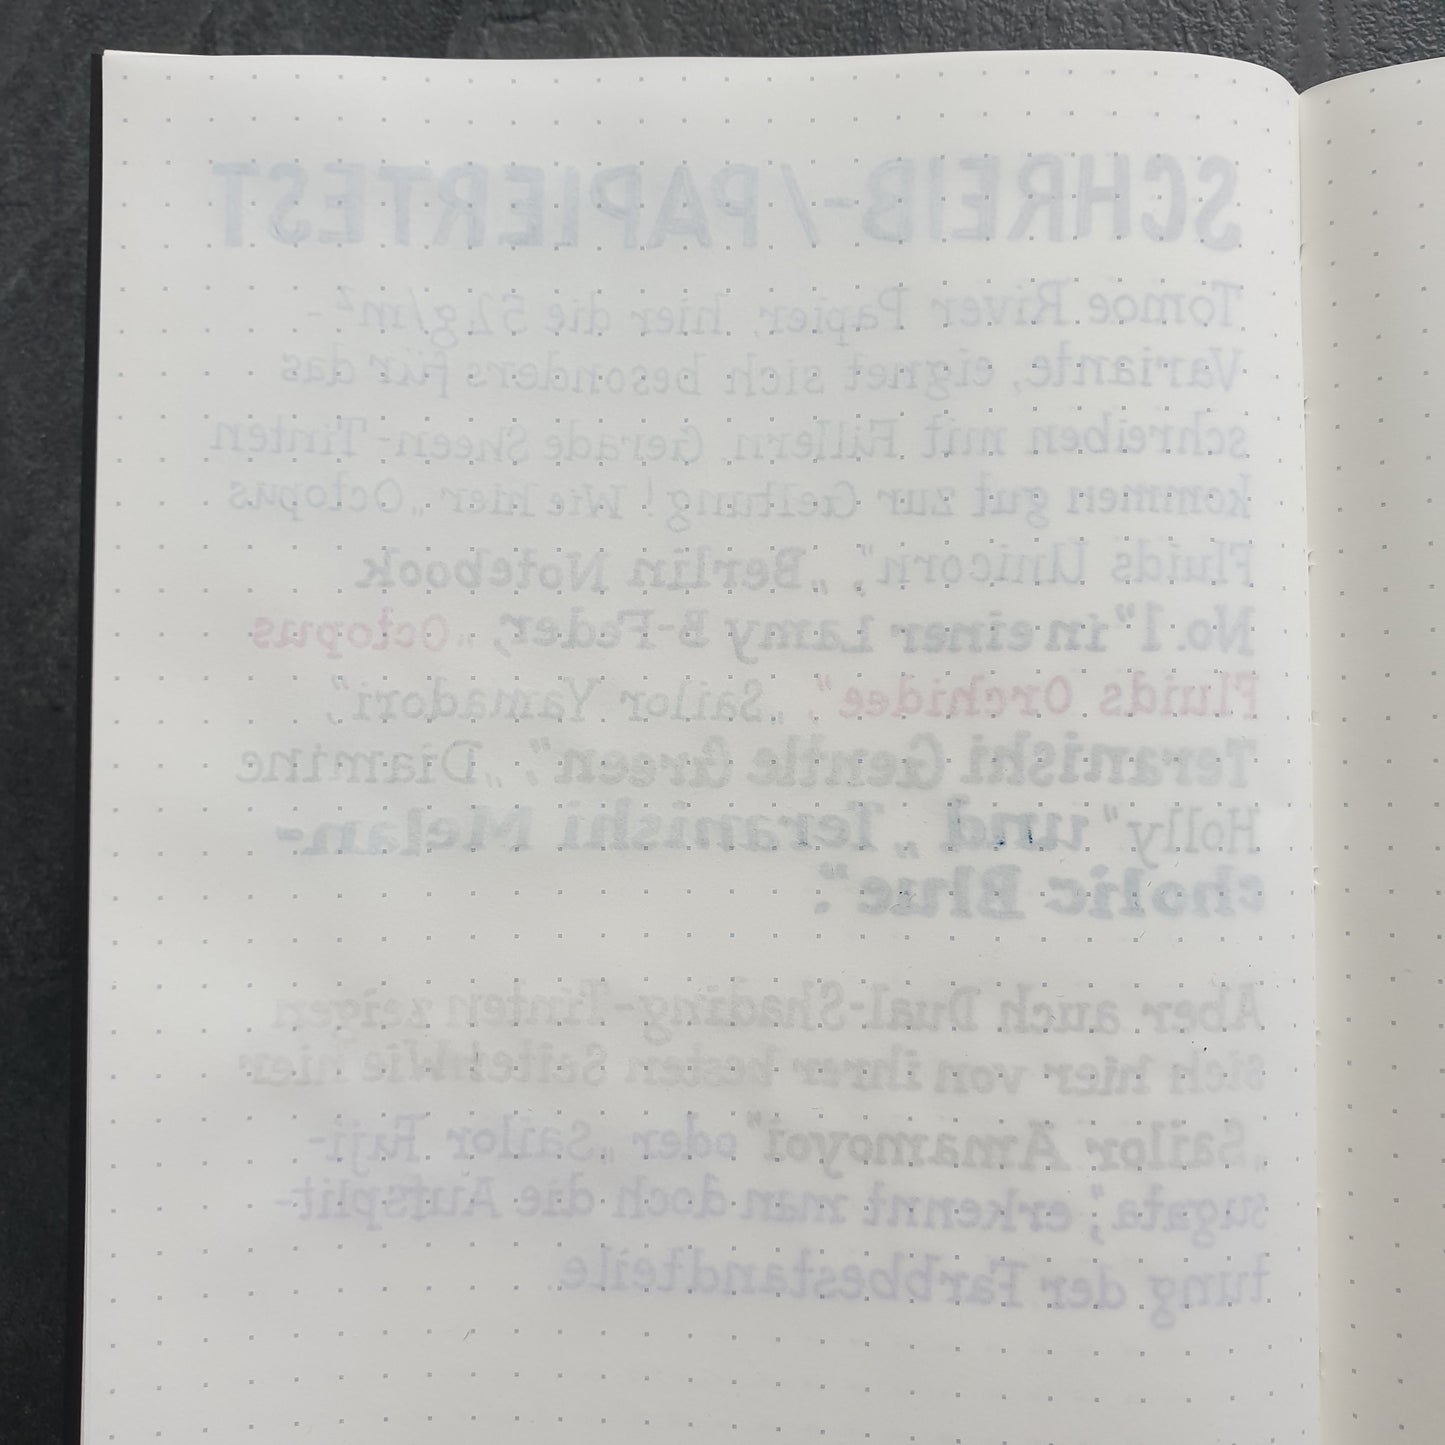 SCHREIB-/PAPIERTEST
Tomoe River Papier, hier die 52g/m² -
Variante, eignet sich besonders für das
schreiben mit Füllern. Gerade Sheen-Tinten
kommen gut zur Geltung! Wie hier „Octopus
Fluids Unicorn", „Berlin Notebook
No.1" in einer Lamy B-Feder, „Octopus
Fluids Orchidee", „Sailor Yamadori",
Teranishi Gentle Green", „Diamine
Holly" und „Teranishi Melan-
cholic Blue".
Aber auch Dual-Shading-Tinten zeigen
sich hier von ihrer besten Seite! Wie hier
„Sailor Amamoyoi" oder „Sailor Fuji-
sugata", erkennt man doch die Aufsplit-
tung der Farbbestandteile.